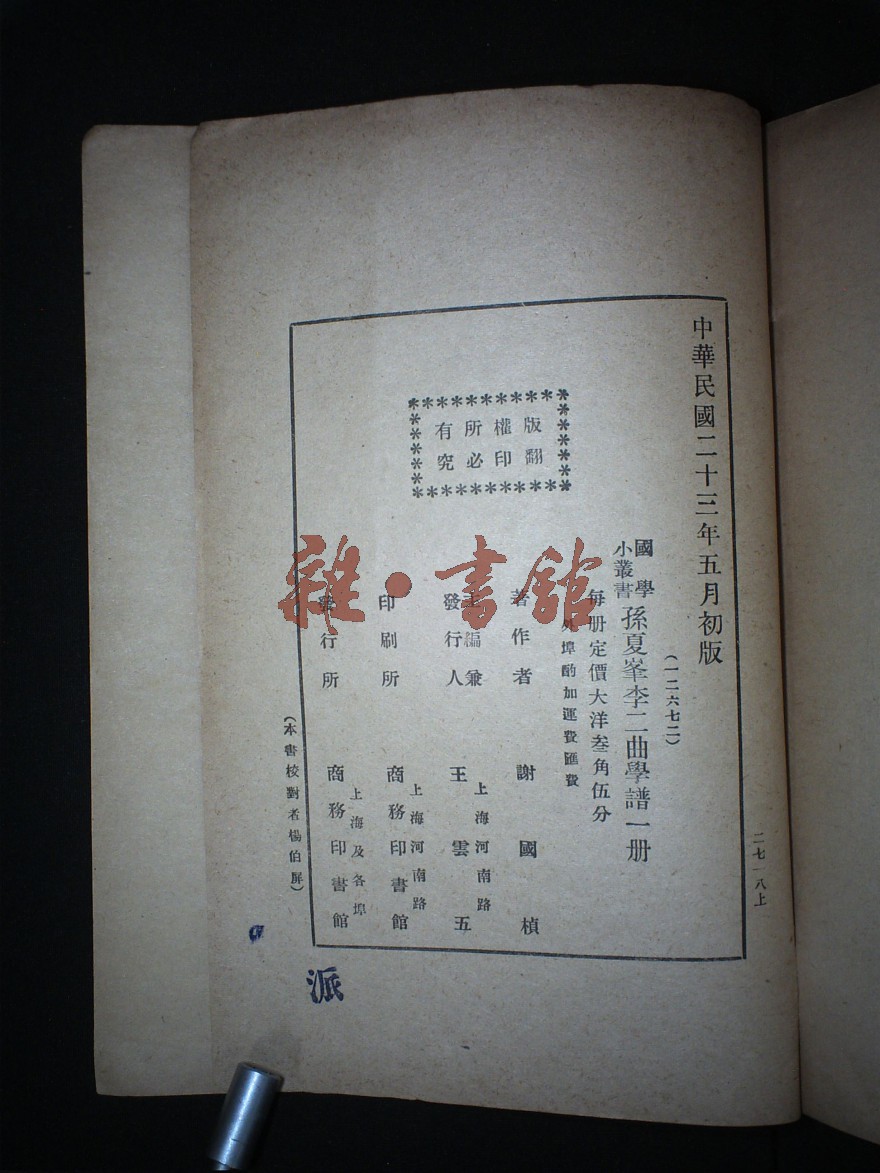 中華民國二十三年五月初版
(一二六七二)
國學小叢書 孫夏峯李二曲學譜一册
每册定價大洋叁角伍分
外埠酌加運費匯費
版權所有
翻印必究
著作者 謝國楨
主編兼發行人 王雲五
上海河南路
印刷所 商務印書館
上海河南路
發行所 商務印書館
上海及各埠
(本書校對者楊伯屏)
二七一八上
派
雜·書館